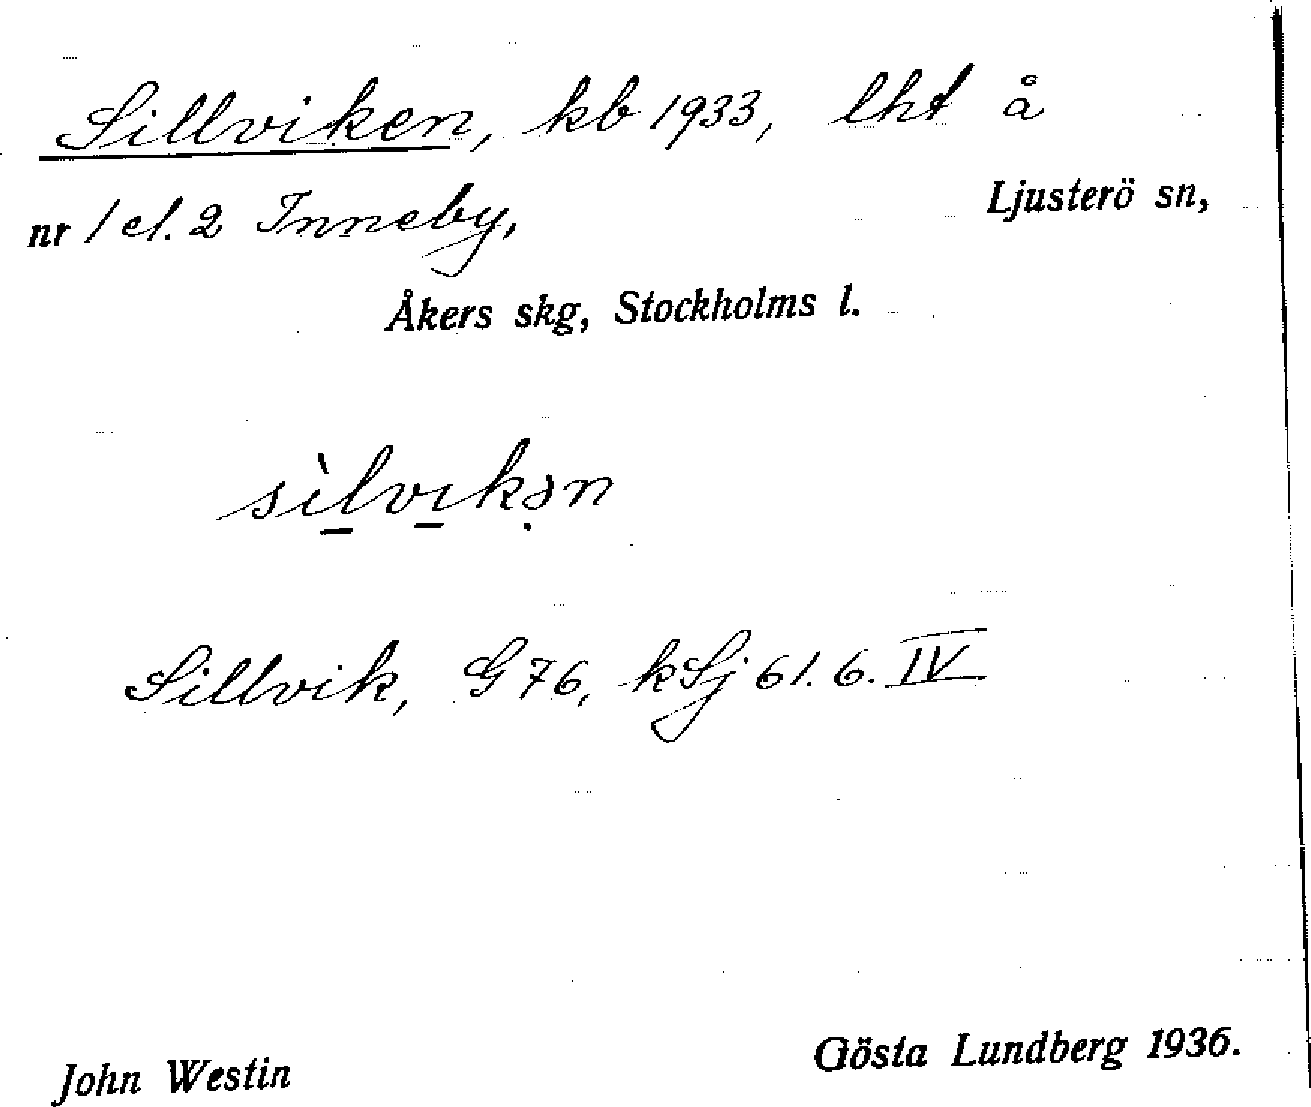 Sillviken, kb 1933, lht å
nr 1 el. 2 Inneby, Ljusterö sn,
Åkers skg, Stockholms l.
sìl̲vɪ̲kə̣n
Sillvik, G 76, kSj 61.6.IV
John Westin Gösta Lundberg 1936.